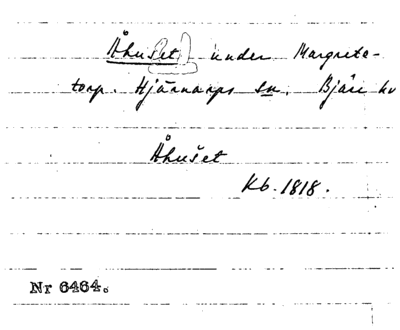 Åhuset under Margreta-
torp. Hjärnarps sn. Bjäre hd
Åhuset
Kb. 1818.
Nr 6464.